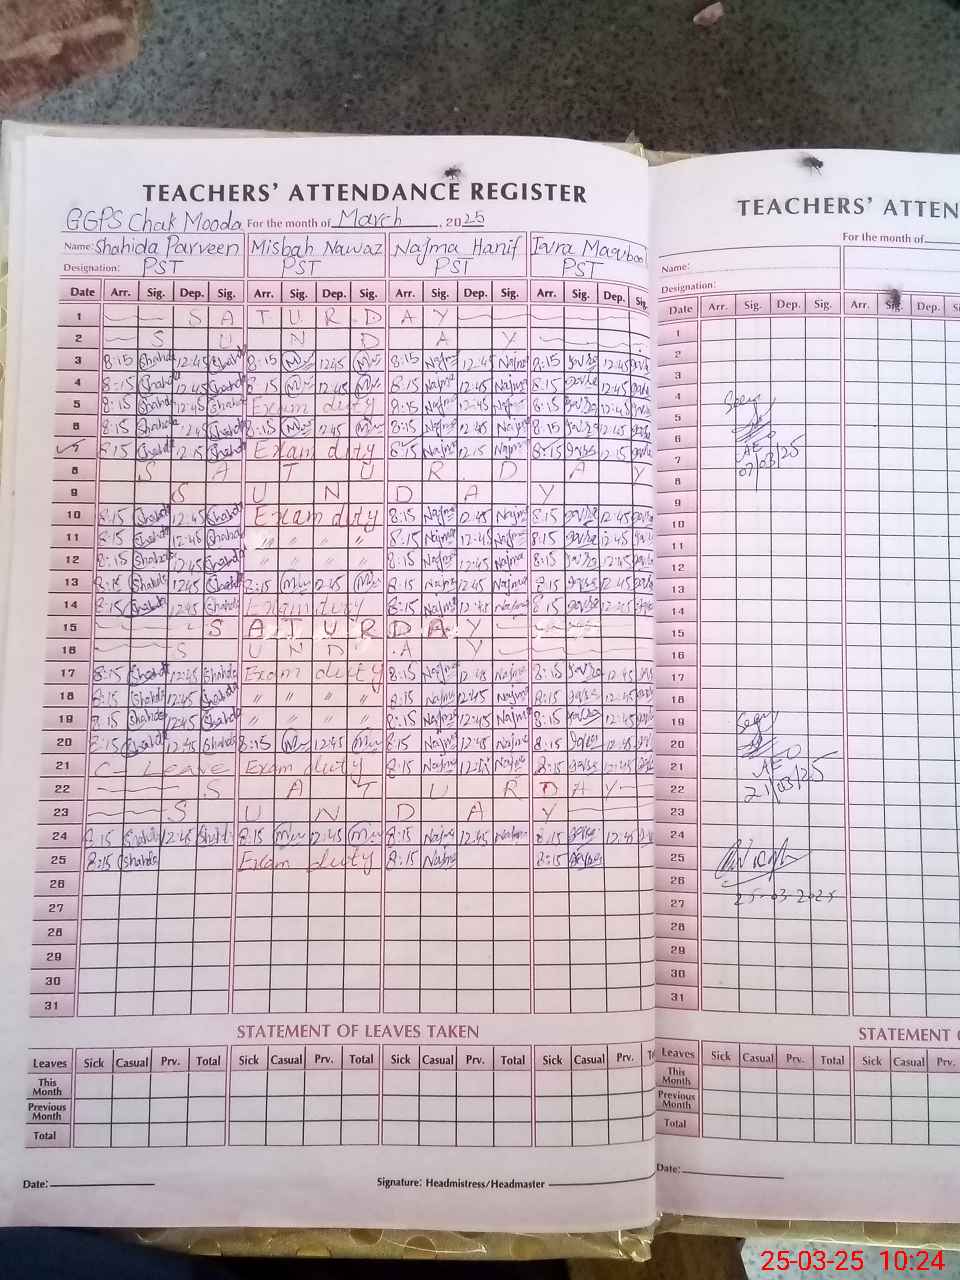 TEACHERS' ATTENDANCE REGISTER
GGPS Chak Mooda For the month of March, 2025
Name: Shahida Parveen Misbah Nawaz Najma Hanif Iqra Maqbool
Designation: PST PST PST PST
Date Arr. Sig. Dep. Sig. Arr. Sig. Dep. Sig. Arr. Sig. Dep. Sig. Arr. Sig. Dep. Sig.
1 S A T U R D A Y
2 S U N D A Y
3 8:15 Shahida 12:45 Shahida 8:15 M 12:45 M 8:15 Najma 12:45 Najma 8:15 12:45
4 8:15 Shahida 12:45 Shahida 8:15 M 12:45 M 8:15 Najma 12:45 Najma 8:15 12:45
5 8:15 Shahida 12:45 Shahida Exam duty 8:15 Najma 12:45 Najma 8:15 12:45
6 8:15 Shahida 12:45 Shahida 8:15 M 12:45 M 8:15 Najma 12:45 Najma 8:15 12:45
7 8:15 Shahida 12:15 Shahida Exam duty 8:15 Najma 12:15 Najma 8:15 12:15
8 S A T U R D A Y
9 S U N D A Y
10 8:15 Shahida 12:45 Shahida Exam duty 8:15 Najma 12:45 Najma 8:15 12:45
11 8:15 Shahida 12:45 Shahida " " " " 8:15 Najma 12:45 Najma 8:15 12:45
12 8:15 Shahida 12:45 Shahida " " " " 8:15 Najma 12:45 Najma 8:15 12:45
13 8:15 Shahida 12:45 Shahida 8:15 M 12:45 M 8:15 Najma 12:45 Najma 8:15 12:45
14 8:15 Shahida 12:45 Shahida Exam duty 8:15 Najma Najma 8:15
15 S A T U R D A Y
16 S U N D A Y
17 8:15 Shahida 12:45 Shahida Exam duty 8:15 Najma 12:45 Najma 8:15 12:45
18 8:15 Shahida 12:45 Shahida " " " " 8:15 Najma 12:45 Najma 8:15 12:45
19 8:15 Shahida 12:45 Shahida " " " " 8:15 Najma 12:45 Najma 8:15 12:45
20 8:15 Shahida 12:45 Shahida 8:15 M 12:45 M 8:15 Najma 12:45 Najma 8:15 12:45
21 C - Leave Exam duty 8:15 Najma Najma 8:15
22 S A T U R D A Y
23 S U N D A Y
24 8:15 Shahida 12:45 Shahida 8:15 M 12:45 M 8:15 Najma 12:45 Najma 8:15 12:45
25 8:15 Shahida Exam duty 8:15 Najma 8:15
26
27
28
29
30
31
STATEMENT OF LEAVES TAKEN
Leaves Sick Casual Prv. Total Sick Casual Prv. Total Sick Casual Prv. Total Sick Casual Prv.
This Month
Previous Month
Total
Date: Signature: Headmistress/Headmaster
TEACHERS' ATTEN
For the month of
Name:
Designation:
Date Arr. Sig. Dep. Sig. Arr. Sig. Dep.
1
2
3
4
5
6
7 AEO
07/03/25
8
9
10
11
12
13
14
15
16
17
18
19
20
21 AEO
22 21/03/25
23
24
25
26
27 25-03-2025
28
29
30
31
STATEMENT O
Leaves Sick Casual Prv. Total Sick Casual Prv.
This Month
Previous Month
Total
Date:
25-03-25 10:24